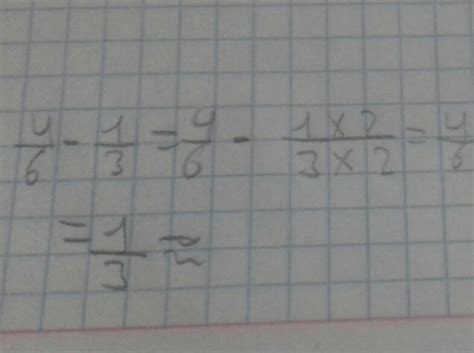 4/6 - 1/3 = 4/6 - 1×2/3×2 = 4/6
= 1/3